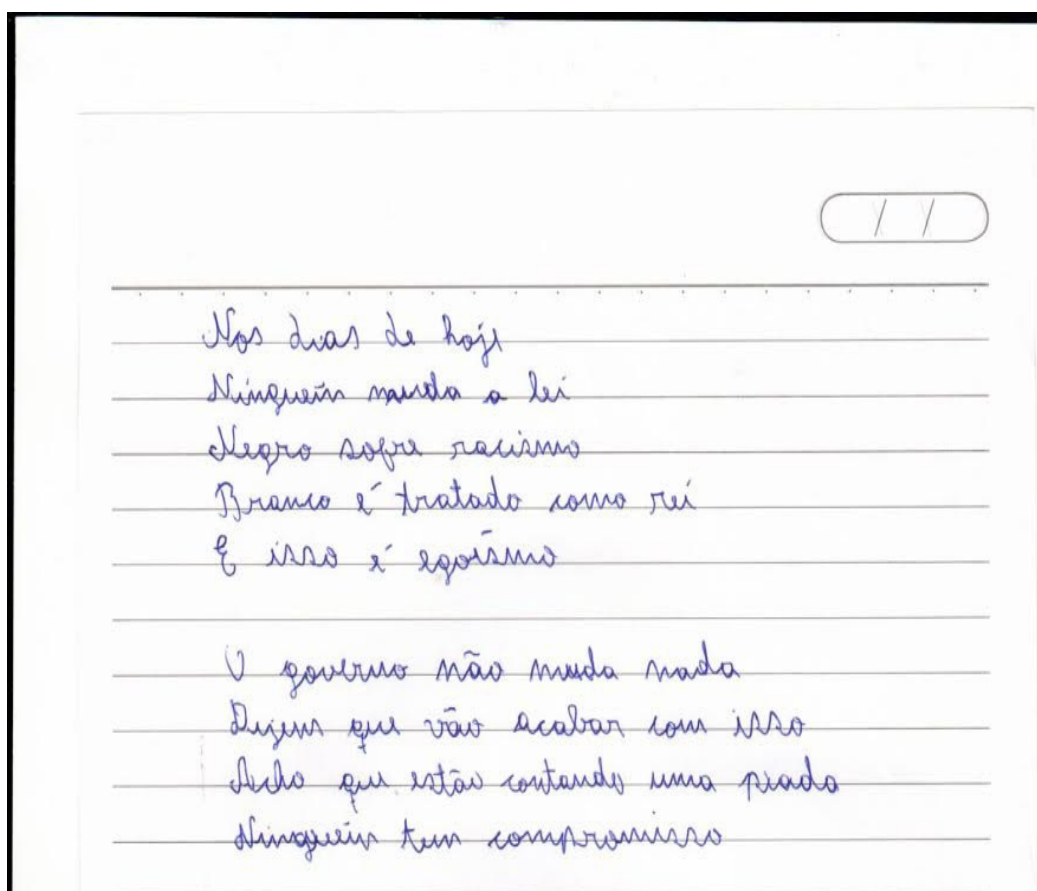 Nos dias de hoje
Ninguém muda a lei
Negro sofre racismo
Branco é tratado como rei
E isso é egoísmo
O governo não muda nada
Dizem que vão acabar com isso
Acho que estão contando uma piada
Ninguém tem compromisso